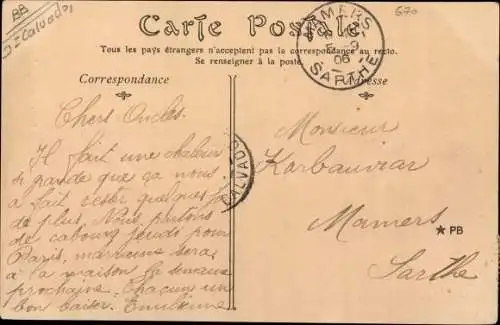 BB
= Calvados
Carte Postale
Tous les pays étrangers n'acceptent pas la correspondance au recto.
Se renseigner à la poste.
MAMERS
06
SARTHE
670
Correspondance
Adresse
Chers Oncles.
Il fait une chaleur
si grande que ça nous
a fait rester quelques
de plus. Nous partons
de cabourg jeudi pour
Paris, marraine sera
à la maison la semaine
prochaine. Chacun un
bon baiser. Emilienne
CALVADOS
Monsieur
Korbauviar
Mamers
Sarthe
★ PB